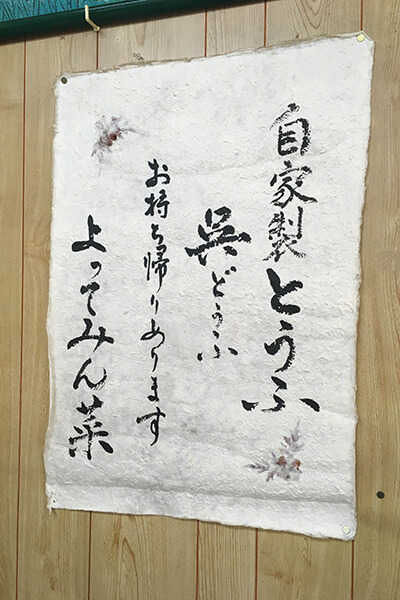 自家製とうふ
呉どうふ
お持ち帰りあります
よってみん菜